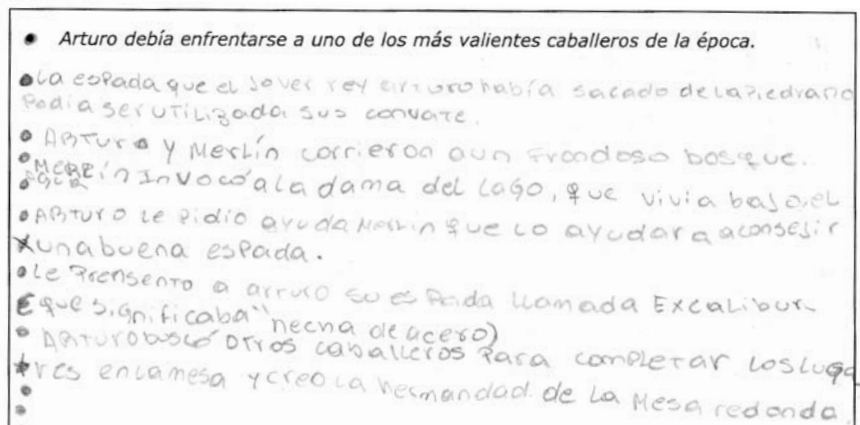 • Arturo debía enfrentarse a uno de los más valientes caballeros de la época.
• La esPada que el Jover rey arturo había sacado de la Piedra no
Podia ser utilizada sus convate.
• ARTURO y Merlín corrieron a un frondoso bosque.
• MERRín Invocó a la dama del Lago, que vivia bajo el
• ARTURO le Pidio ayuda Merlin que lo ayudar a aconsejir
una buena esPada.
• Le Prensento a arturo su esPada llamada Excalibur
que significaba "hecha de acero)
• ARTURO buscó otros caballeros Para completar los luga
res en la mesa y creo la hermandad de La Mesa redonda.